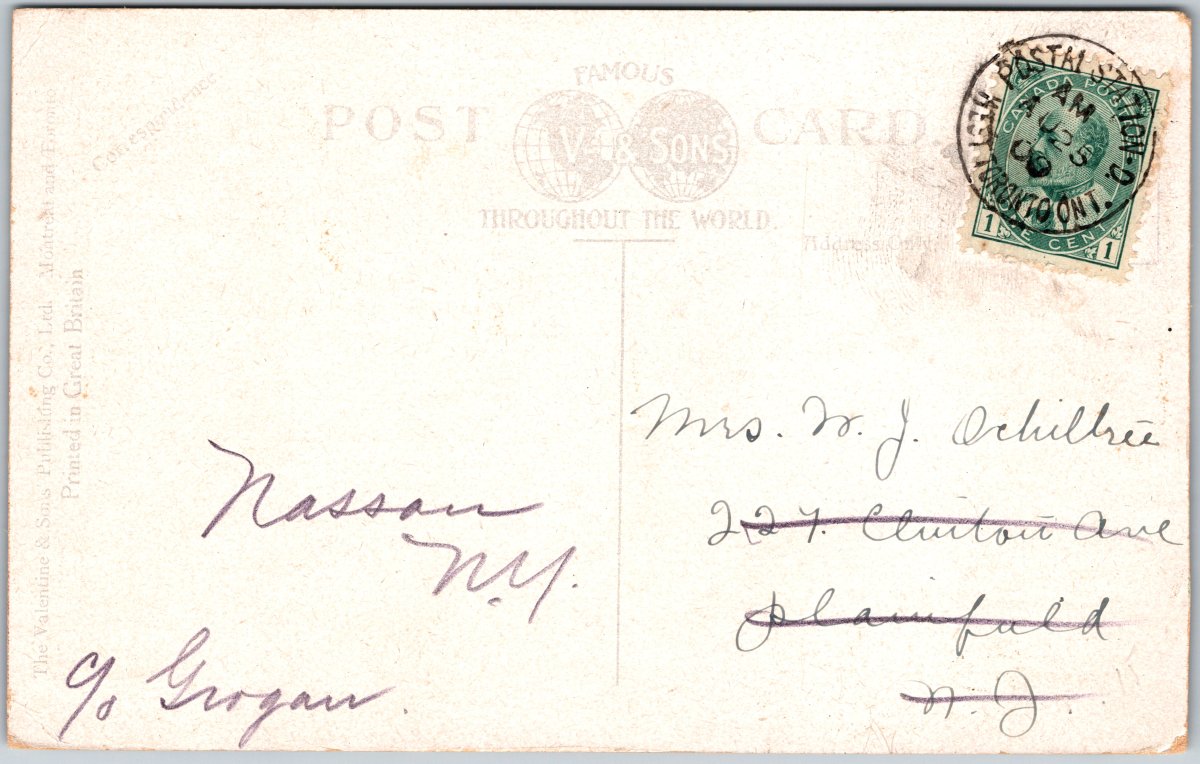 FAMOUS
POST CARD
V. & SONS
THROUGHOUT THE WORLD.
Correspondence
Address Only
POSTAL STATION-D.
AM
AU 25
09
TORONTO ONT.
CANADA POSTAGE
1 ONE CENT 1
The Valentine & Sons Publishing Co., Ltd. Montreal and Toronto
Printed in Great Britain
Mrs. W. J. Ochiltree
227. Clinton Ave
Plainfield
N. J.
Nassau
N.Y.
c/o Grogan.